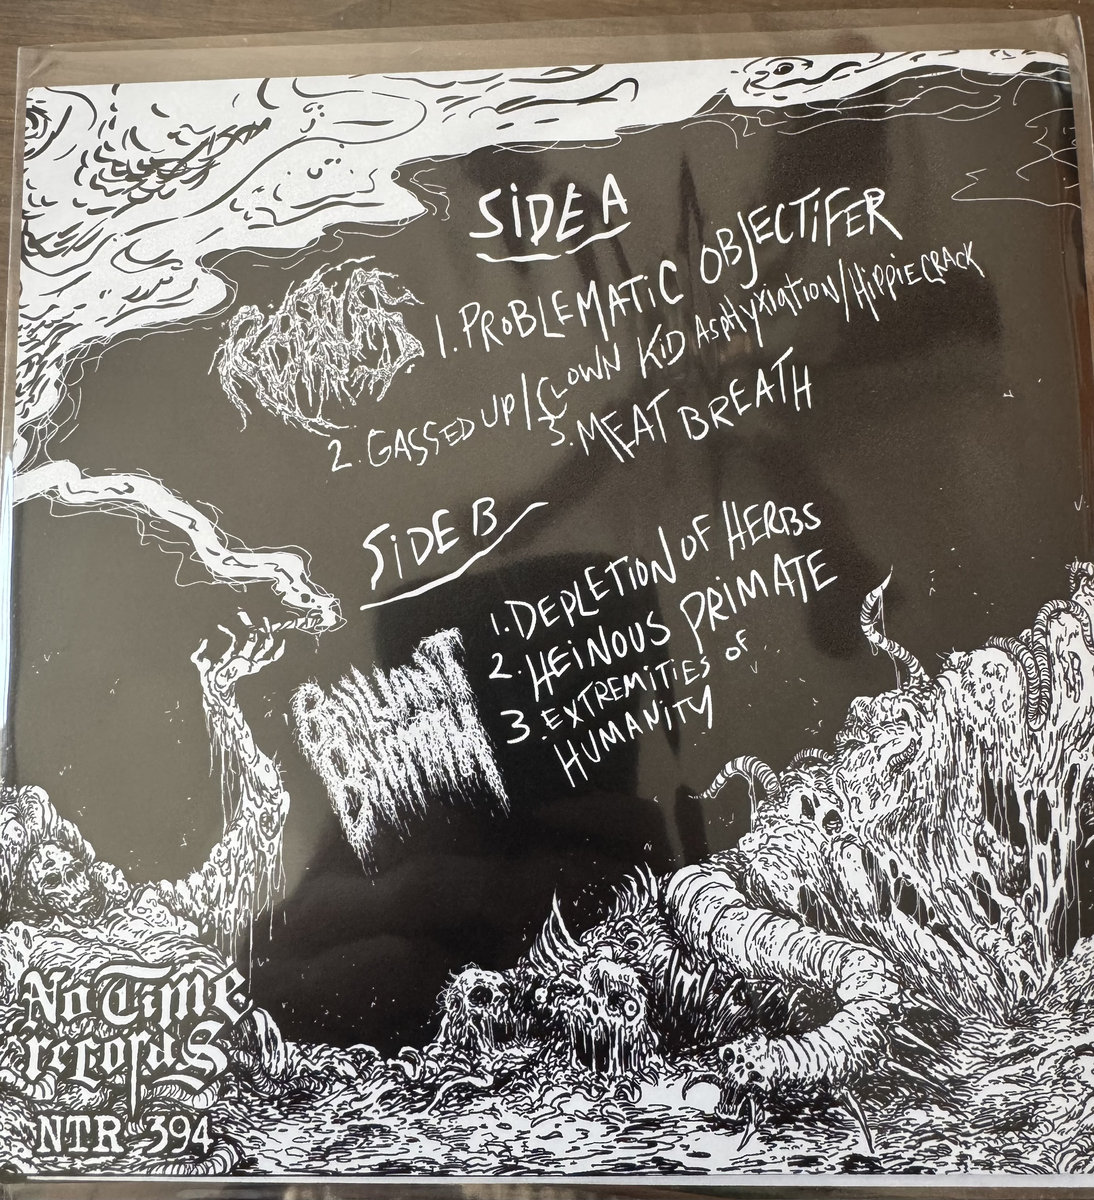 SiDE A
1. PROBLEMATiC OBJECTiFER
2. GASSED UP/CLOWN KiD ASPHYXIATiON/HiPPiECRACK
3. MEAT BREATH
SiDE B
1. DEPLETION OF HERBS
2. HEiNOUS PRiMATE
3. EXTREMITIES OF
HUMANITY
No Time
records
NTR 394